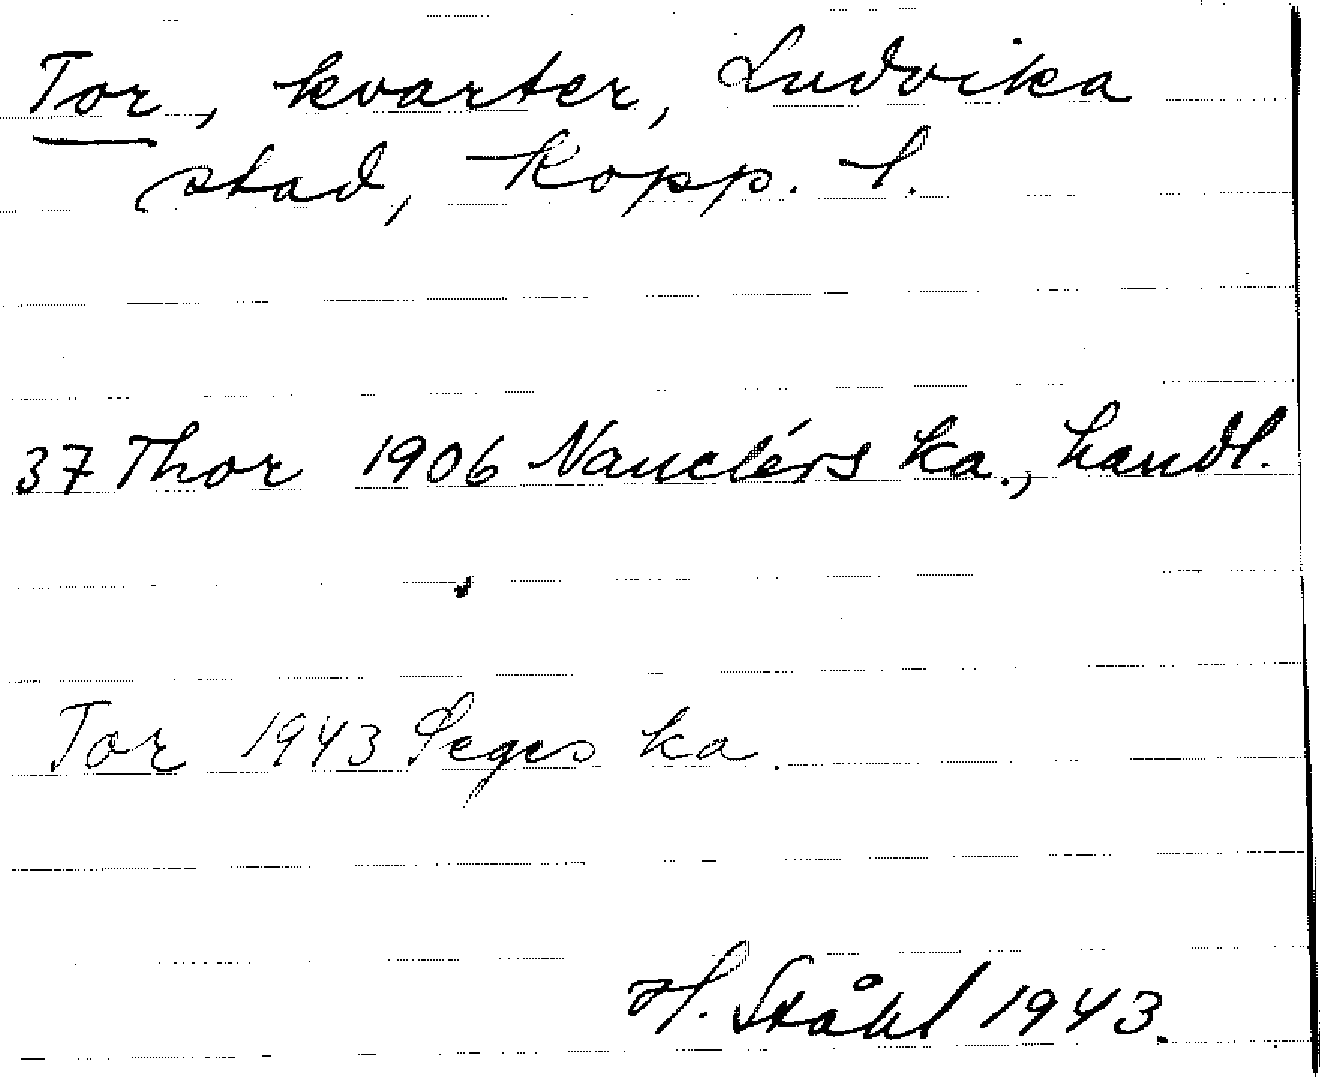 Tor, kvarter, Ludvika
stad, Kopp. l.
37 Thor 1906 Nauclérs ka., handl.
Tor 1943 Seges ka.
H. Ståhl 1943.